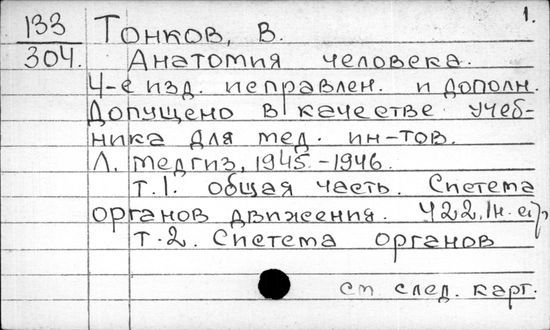 133
304.
1.
Тонков, В.
Анатомия человека.
4-е изд. исправлен. и дополн.
Допущено в качестве учеб-
ника для мед. ин-тов.
Л. Медгиз, 1945-1946.
т.1. общая часть. Система
органов движения. 422, 1н. с.
т.2. Система органов
см след. карт.